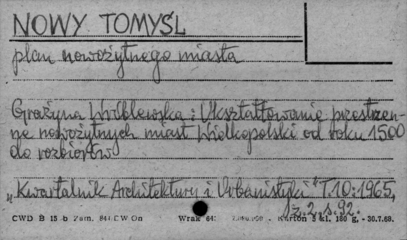 NOWY TOMYŚL
plan nowożytnego miasta
Grażyna Wróblewska : Ukształtowanie przestrzen-
ne nowożytnych miast Wielkopolski od roku 1500
do rozbiorów
„Kwartalnik Architektury i Urbanistyki" T.10:1965,
z.2, s.92.
CWD B 15-b Zam. Wrak Karton 5 kl. 180 g. - 30.7.68.